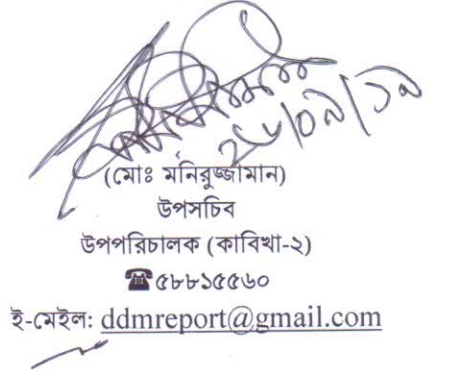 ২৮/০৯/১৯
(মোঃ মনিরুজ্জামান)
উপসচিব
উপপরিচালক (কাবিখা-২)
☎৫৮৮১৫৫৬০
ই-মেইল: ddmreport@gmail.com